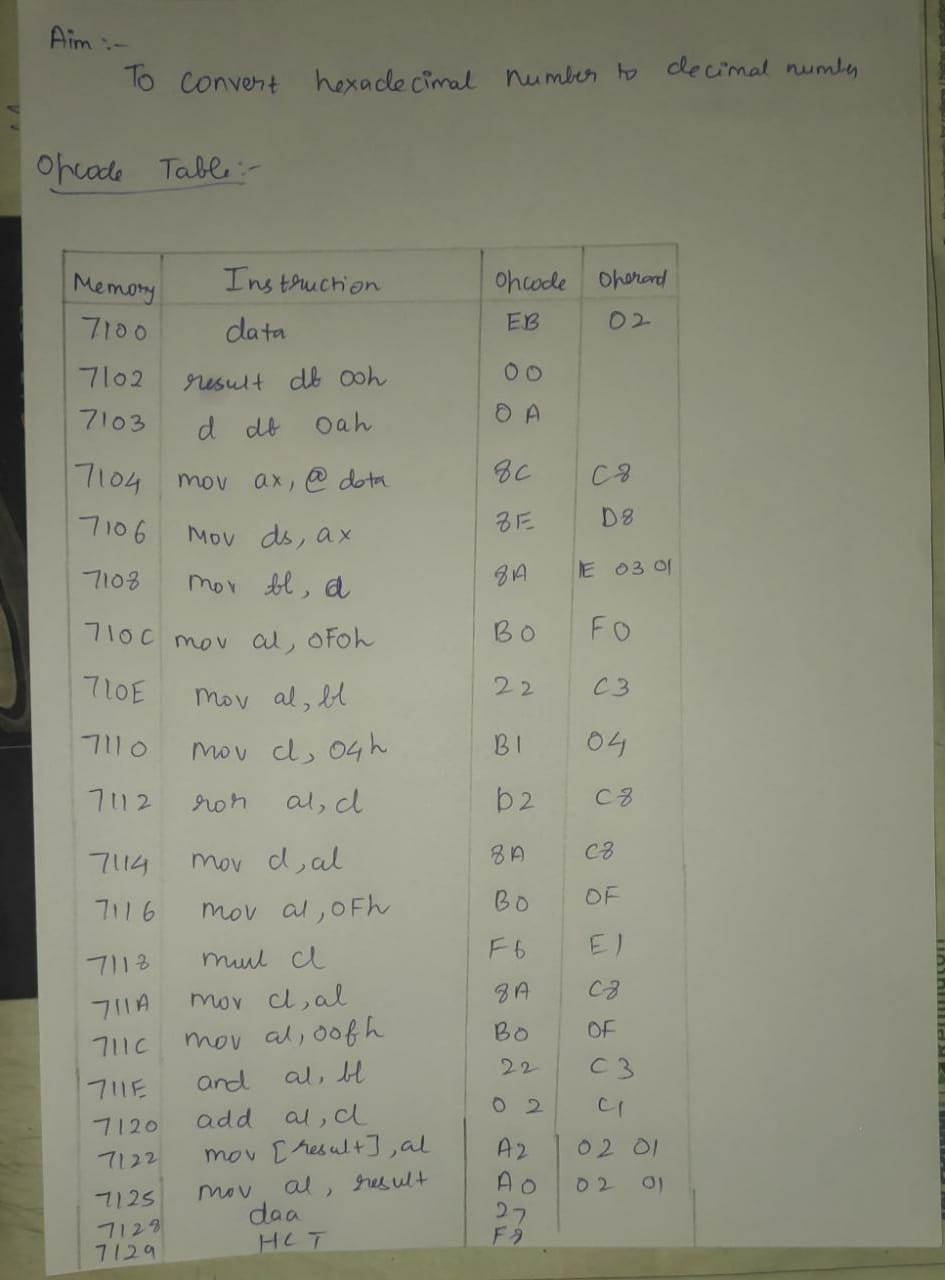 Aim :-
To convert hexadecimal number to decimal number
Opcode Table:-
Memory Instruction Opcode Operand
7100 data EB 02
7102 result db 00h 00
7103 d db 0ah 0A
7104 mov ax, @ data 8C C8
7106 Mov ds, ax 8E D8
7108 mov bl, d 8A 1E 03 01
710C mov al, 0F0h B0 F0
710E mov al, bl 22 C3
7110 mov cl, 04h B1 04
7112 ror al, cl D2 C8
7114 mov cl, al 8A C8
7116 mov al, 0Fh B0 0F
7118 mul cl F6 E1
711A mov cl, al 8A C8
711C mov al, 00fh B0 0F
711E and al, bl 22 C3
7120 add al, cl 02 C1
7122 mov [result], al A2 02 01
7125 mov al, result A0 02 01
7128 daa 27
7129 HLT